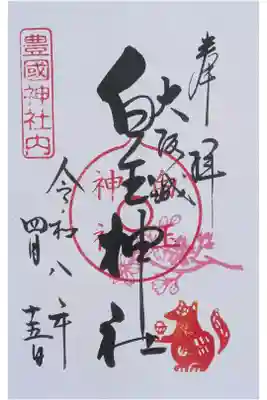 奉拝
大阪城
白玉神社
令和八年
四月十五日
豊國神社内
神社